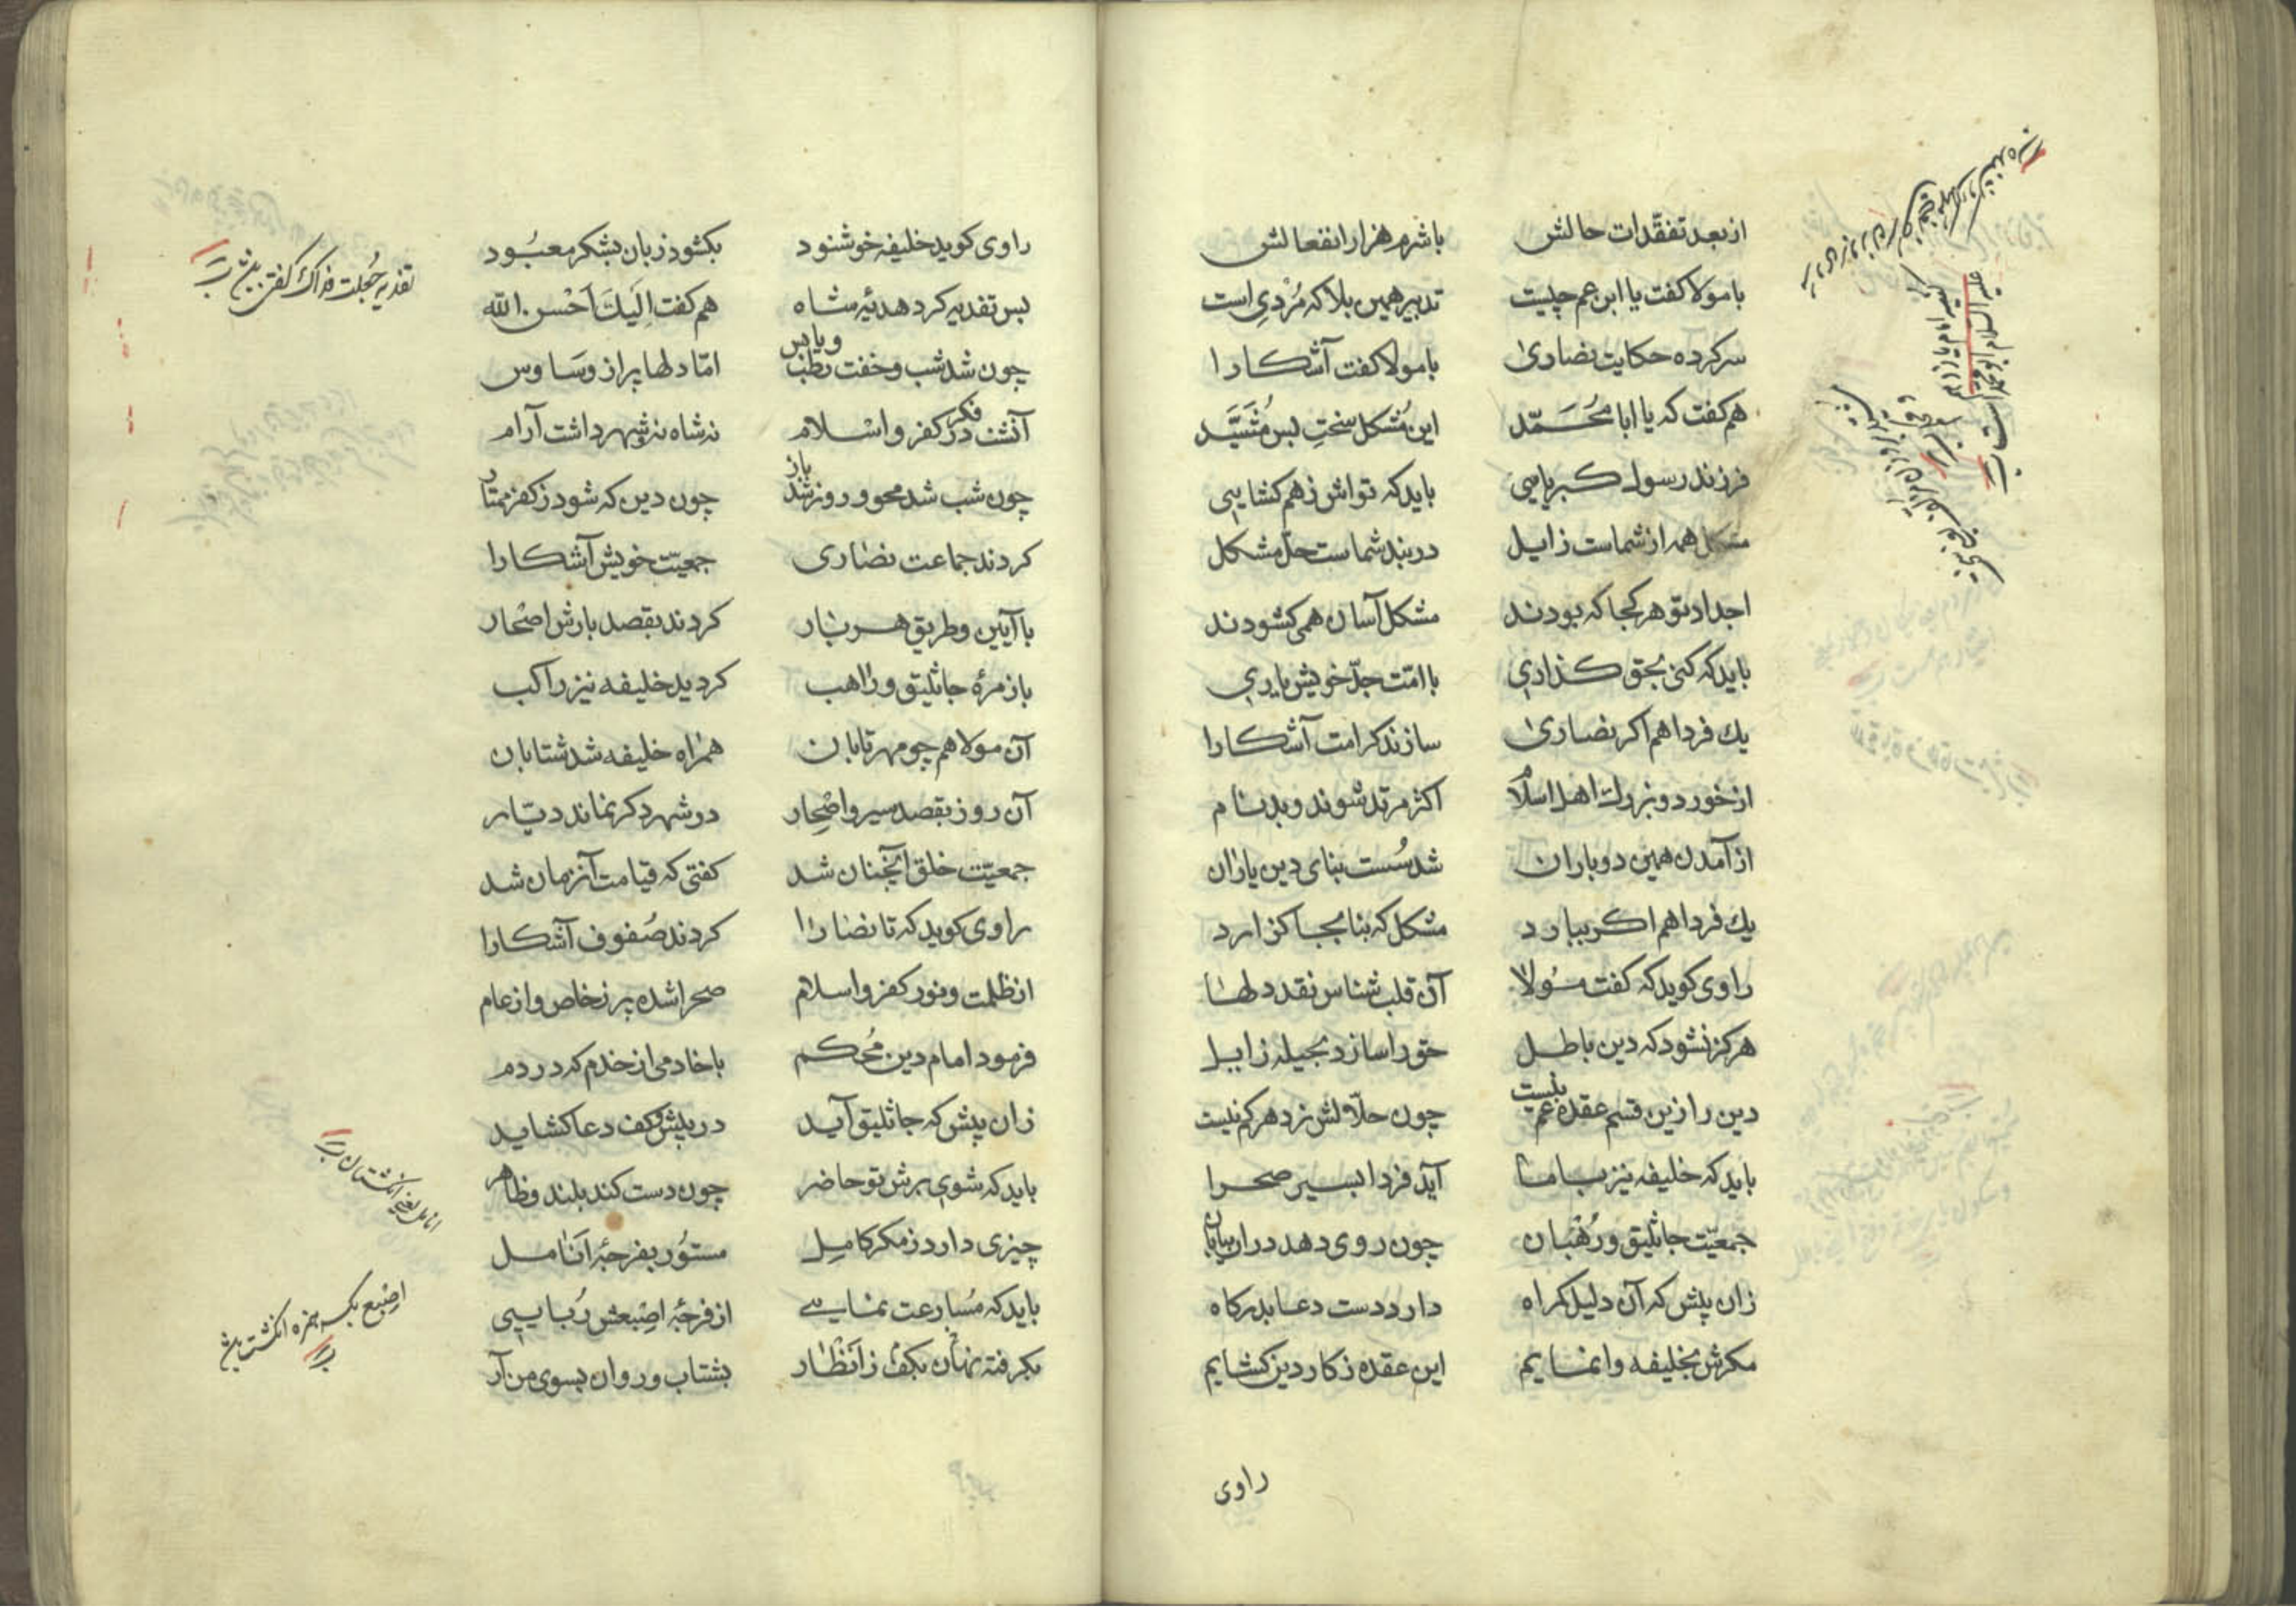 از بعد تفقّدات حالش باشرم هزار انفعالش
با مولا کفت یا ابن عم چیست تدبیر همین بلا که مُزدِی است
سر کرده حکایت نصاریٰ با مولا کفت آشکارا
هم کفت که یا ابا محُمَّد این مُشکل سختِ بس مُشَیَّد
فرزند رسول کبریایی باید که تواش ز هم کشایی
مشکل همه از شماست زایل در بند شماست حلّ مشکل
اجداد تو هر کجا که بودند مشکل آسان همی کشودند
باید که کنی بحق کذاری با امّت جدّ خویش یاری
یك فردا هم اکر نصاریٰ سازند کرامت آشکارا
از خورد و بزرك اهل اسلام اکثر مرتد شوند و بدنام
از آمدن همین دو باران شد سُست بنای دین یاران
یك فردا هم اکر ببارد مشکل که بنا بجا کزارد
راوی کوید که کفت مولا آن قلب شناس نقد دلها
هرکز نشود که دین باطل حق را سازد بحیله زایل
دین را زین قسم عقده غم نیست چون حلّالش نزد هر کم نیست
باید که خلیفه نیز با ما آید فردا بسیر صحرا
جمعیّت جاثلیق و رُهْبان چون روی دهد در ان بیابان
زان پیش که آن دلیل کمراه دارد دست دعا بدرکاه
مکرش بخلیفه وانمایم این عقده ز کار دین کشایم
راوی
راوی کوید خلیفه خوشنود بکشود زبان بشکر معبُود
بس تفدیه کرد هدیهٔ شاه هم کفت اِلَیكَ اَحْسن الله
چون شد شب و خفت رطب و یابس امّا دلها پر از وسَاوس
آنشب در فکر کفر و اسْلام نه شاه نه شهر داشت آرام
چون شب شد محو و روز شد باز چون دین که شود ز کفر ممتاز
کردند جماعت نصاری جمعیّت خویش آشکارا
با آیین و طریق هر بار کردند بقصد بارش اصْحار
با زمرهٔ جاثلیق و راهب کردید خلیفه نیز راکب
آن مولا هم چو مهر تابان همراه خلیفه شد شتابان
آن روز بقصد سیر و اصْحِار در شهر دکر نماند دیّار
جمعیّت خلق آنچنان شد کفتی که قیامت آنزمان شد
راوی کوید که تا نصارا کردند صُفوف آشکارا
از ظلمت و نور کفر و اسلام صحرا شده پر ز خاص و از عام
فرمود امام دین مُحکم با خادمی از خدم که در دم
زان پیش که جاثلیق آید در پیش و کف دعا کشاید
باید که شوی برش تو حاضر چون دست کند بلند و ظاهر
چیزی دارد ز مکر کامِل مستوُر بفرجهٔ اَنَامل
باید که مُسارعت نمایی از فرجهٔ اصْبعش رُبایی
بکرفته نهان بکف ز اَنْظار بشتاب و روان بسوی من آر
تفدیه جُعلت فداك کفتن
انامل یعنی انکشتان
اِصْبع بکسر همزه انکشت